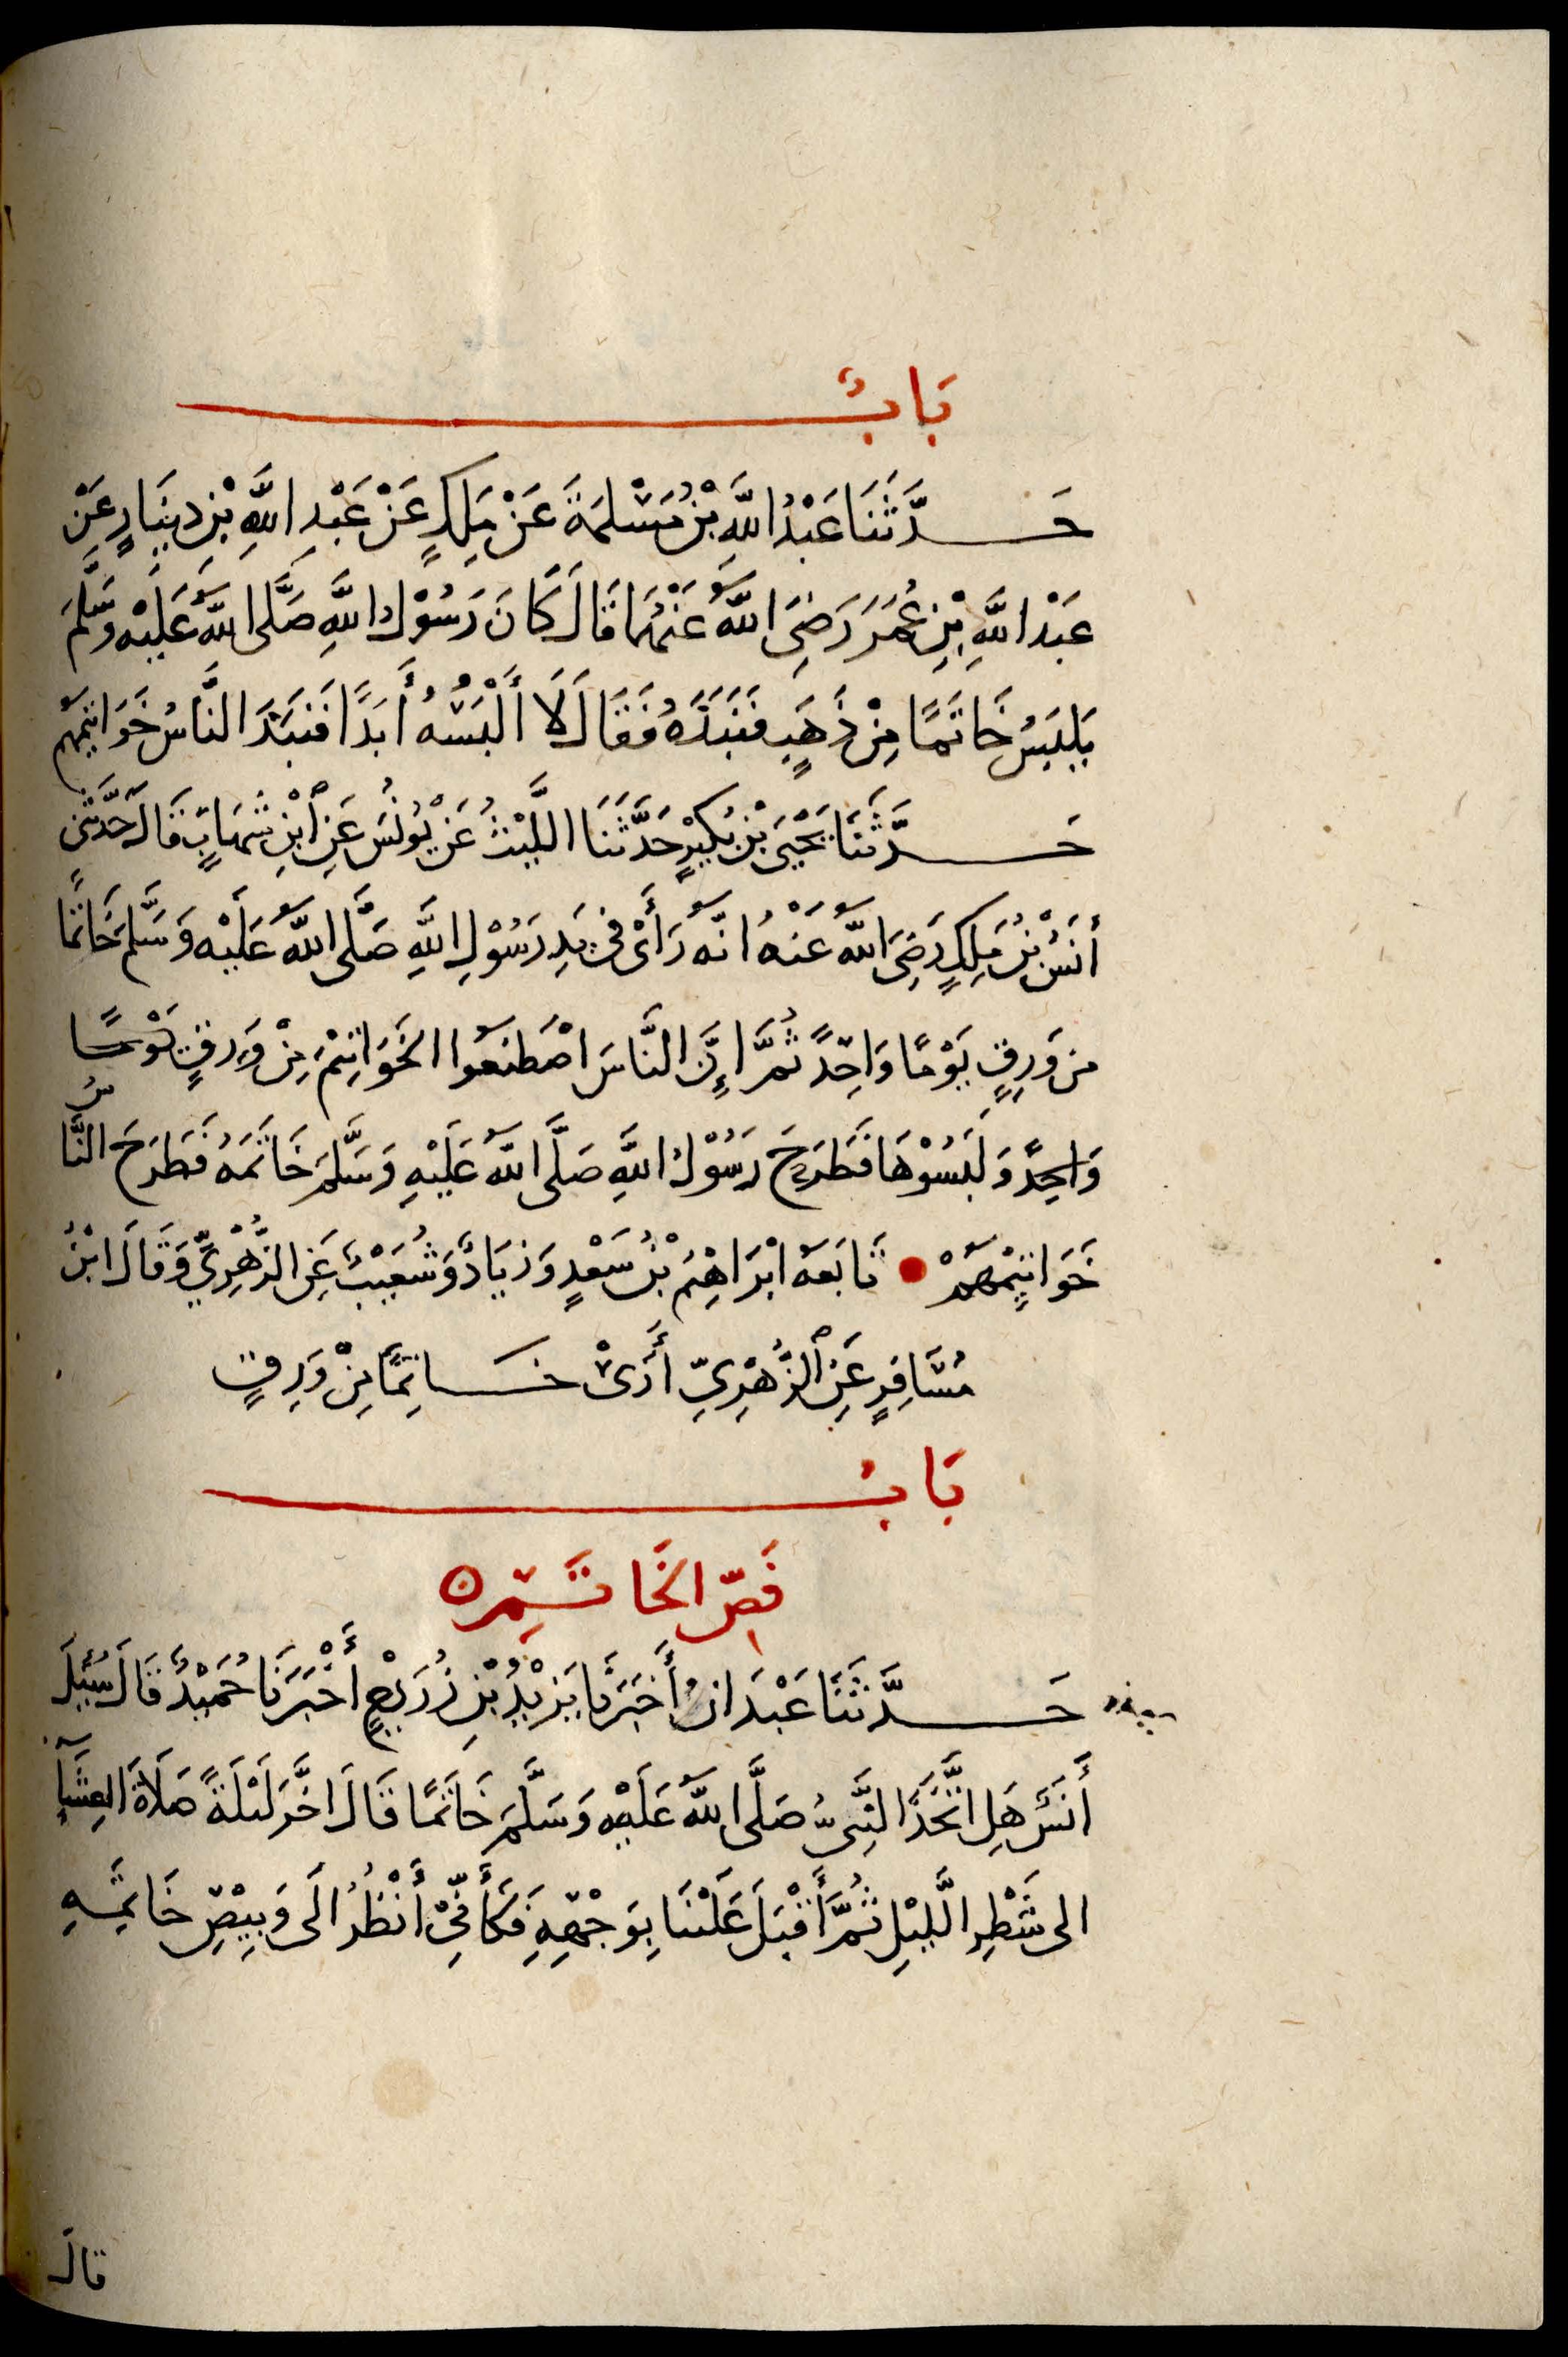 بَابٌ
حَدَّثَنَا عَبْدُ اللَّهِ بْنُ مَسْلَمَةَ عَنْ مَلِكٍ عَنْ عَبْدِ اللَّهِ بْنِ دِينَارٍ عَنْ
عَبْدِ اللَّهِ بْنِ عُمَرَ رَضِيَ اللَّهُ عَنْهُمَا قَالَ كَانَ رَسُوْلُ اللَّهِ صَلَّى اللَّهُ عَلَيْهِ وَسَلَّمَ
يَلْبَسُ خَاتَمًا مِنْ ذَهَبٍ فَنَبَذَهُ فَقَالَ لَا أَلْبَسُهُ أَبَدًا فَنَبَذَ النَّاسُ خَوَاتِيمَهُمْ
حَدَّثَنَا يَحْيَى بْنُ بُكَيْرٍ حَدَّثَنَا اللَّيْثُ عَنْ يُونُسَ عَنِ ابْنِ شِهَابٍ قَالَ حَدَّثَنِي
أَنَسُ بْنُ مَلِكٍ رَضِيَ اللَّهُ عَنْهُ انَّهُ رَأَىْ فِي يَدِ رَسُوْلِ اللَّهِ صَلَّى اللَّهُ عَلَيْهِ وَسَلَّمَ خَاتَمًا
مِن وَرِقٍ يَوْمًا وَاحِدًا ثُمَّ إِنَّ النَّاسَ اصْطَنَعُوا الخَوَاتِيْمَ مِنْ وَرِقٍ يَوْمًا
وَاحِدًا وَلَبِسُوْهَا فَطَرَحَ رَسُوْلُ اللَّهِ صَلَّى اللَّهُ عَلَيْهِ وَسَلَّمَ خَاتَمَهُ فَطَرَحَ النَّاسُ
خَوَاتِيْمَهُمْ تَابَعَهُ ابْرَاهِيْمُ بْنُ سَعْدٍ وَزِيَادٌ وَشُعَيْبٌ عَنِ الزُّهْرِيِّ وَقَالَ ابْنُ
مُسَافِرٍ عَنِ الزُّهْرِيِّ أَرَىْ خَاتِمًا مِنْ وَرِقٍ
بَابُ
فَصِّ الخَاتَمِ ه
حَدَّثَنَا عَبْدَانُ أَخْبَرَنَا يَزِيْدُ بْنُ زُرَيْعٍ أَخْبَرَنَا حُمَيْدٌ قَالَ سُئِلَ
أَنَسٌ هَلِ اتَّخَذَ النَّبِىُّ صَلَّى اللَّهُ عَلَيْهِ وَسَلَّمَ خَاتَمًا قَالَ اخَّرَ لَيْلَةً صَلَاةَ العِشَآءِ
الى شَطْرِ الَّليْلِ ثُمَّ أَقْبَلَ عَلَيْنَا بِوَجْهِهِ فَكَأَنِّىْ أَنْظُرُ الَى وَبِيْصِ خَاتِمِهِ
قالَ